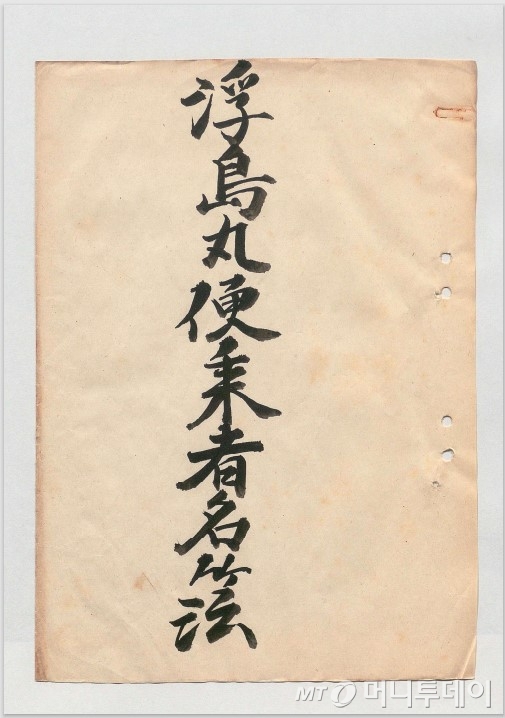 浮島丸便乗者名簿
MT 머니투데이